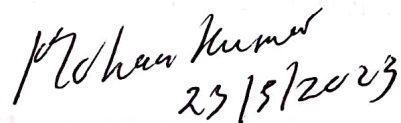 Mohan Kumar
23/5/2023